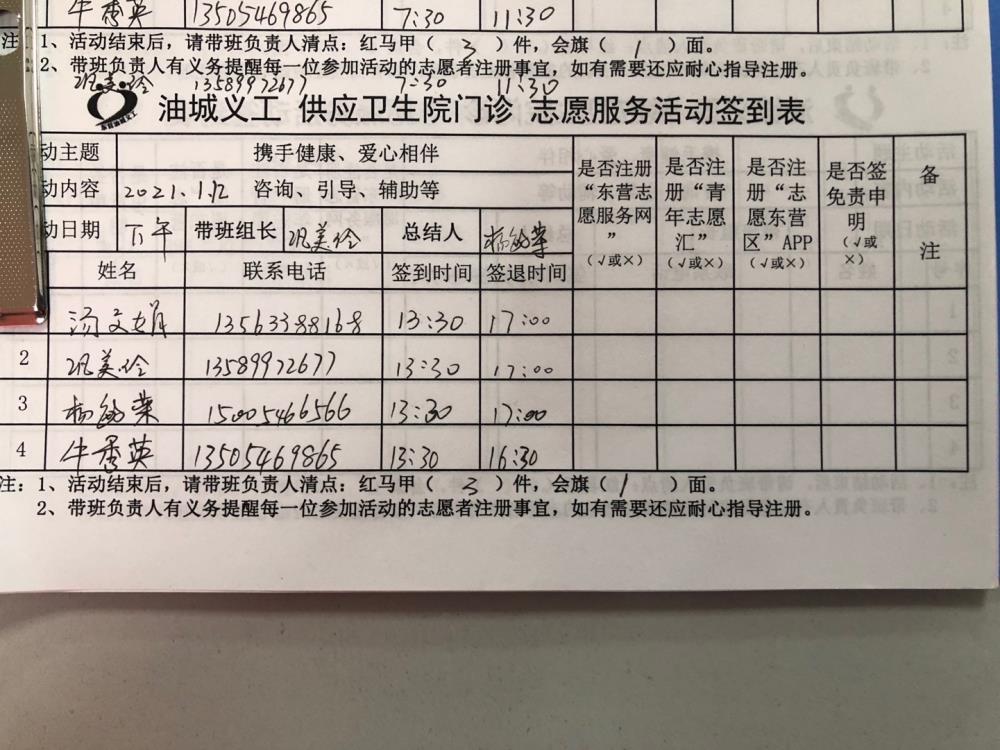 牛秀英 13505469865 7:30 11:30
注 1、活动结束后，请带班负责人清点：红马甲（ 3 ）件，会旗（ 1 ）面。
2、带班负责人有义务提醒每一位参加活动的志愿者注册事宜，如有需要还应耐心指导注册。
巩美伶 13589972677 7:30 11:30
油城义工 供应卫生院门诊 志愿服务活动签到表
动主题 携手健康、爱心相伴 是否注册“东营志愿服务网”（√或×） 是否注册“青年志愿汇”（√或×） 是否注册“志愿东营区”APP（√或×） 是否签免责申明（√或×） 备注
动内容 2021.1.12 咨询、引导、辅助等
动日期 下午 带班组长 巩美伶 总结人 杨敏荣
姓名 联系电话 签到时间 签退时间
汤文娟 13563388168 13:30 17:00
2 巩美伶 13589972677 13:30 17:00
3 杨敏荣 15005466566 13:30 17:00
4 牛秀英 13505469865 13:30 16:30
注：1、活动结束后，请带班负责人清点：红马甲（ 3 ）件，会旗（ 1 ）面。
2、带班负责人有义务提醒每一位参加活动的志愿者注册事宜，如有需要还应耐心指导注册。